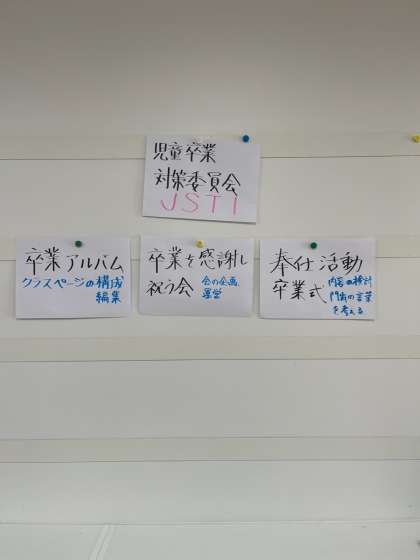 児童卒業
対策委員会
JSTI
卒業アルバム
クラスページの構成
編集
卒業を感謝し
祝う会
会の企画
運営
奉仕活動
卒業式
内容の検討
門出の言葉
を考える